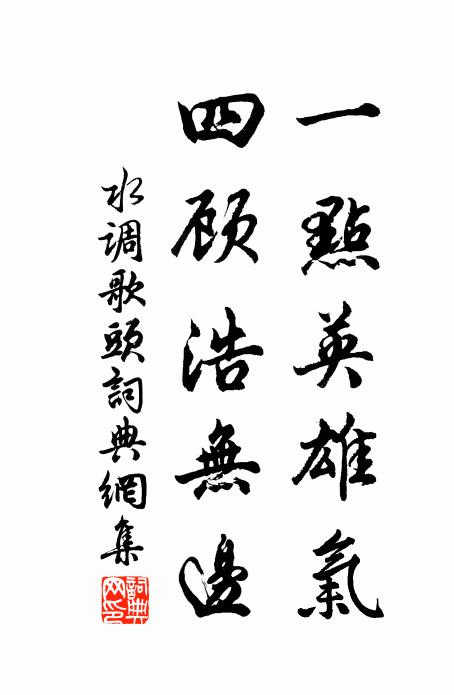 一點英雄氣
四顾浩無邊
水调歌頭詞典網集
詞典
网印